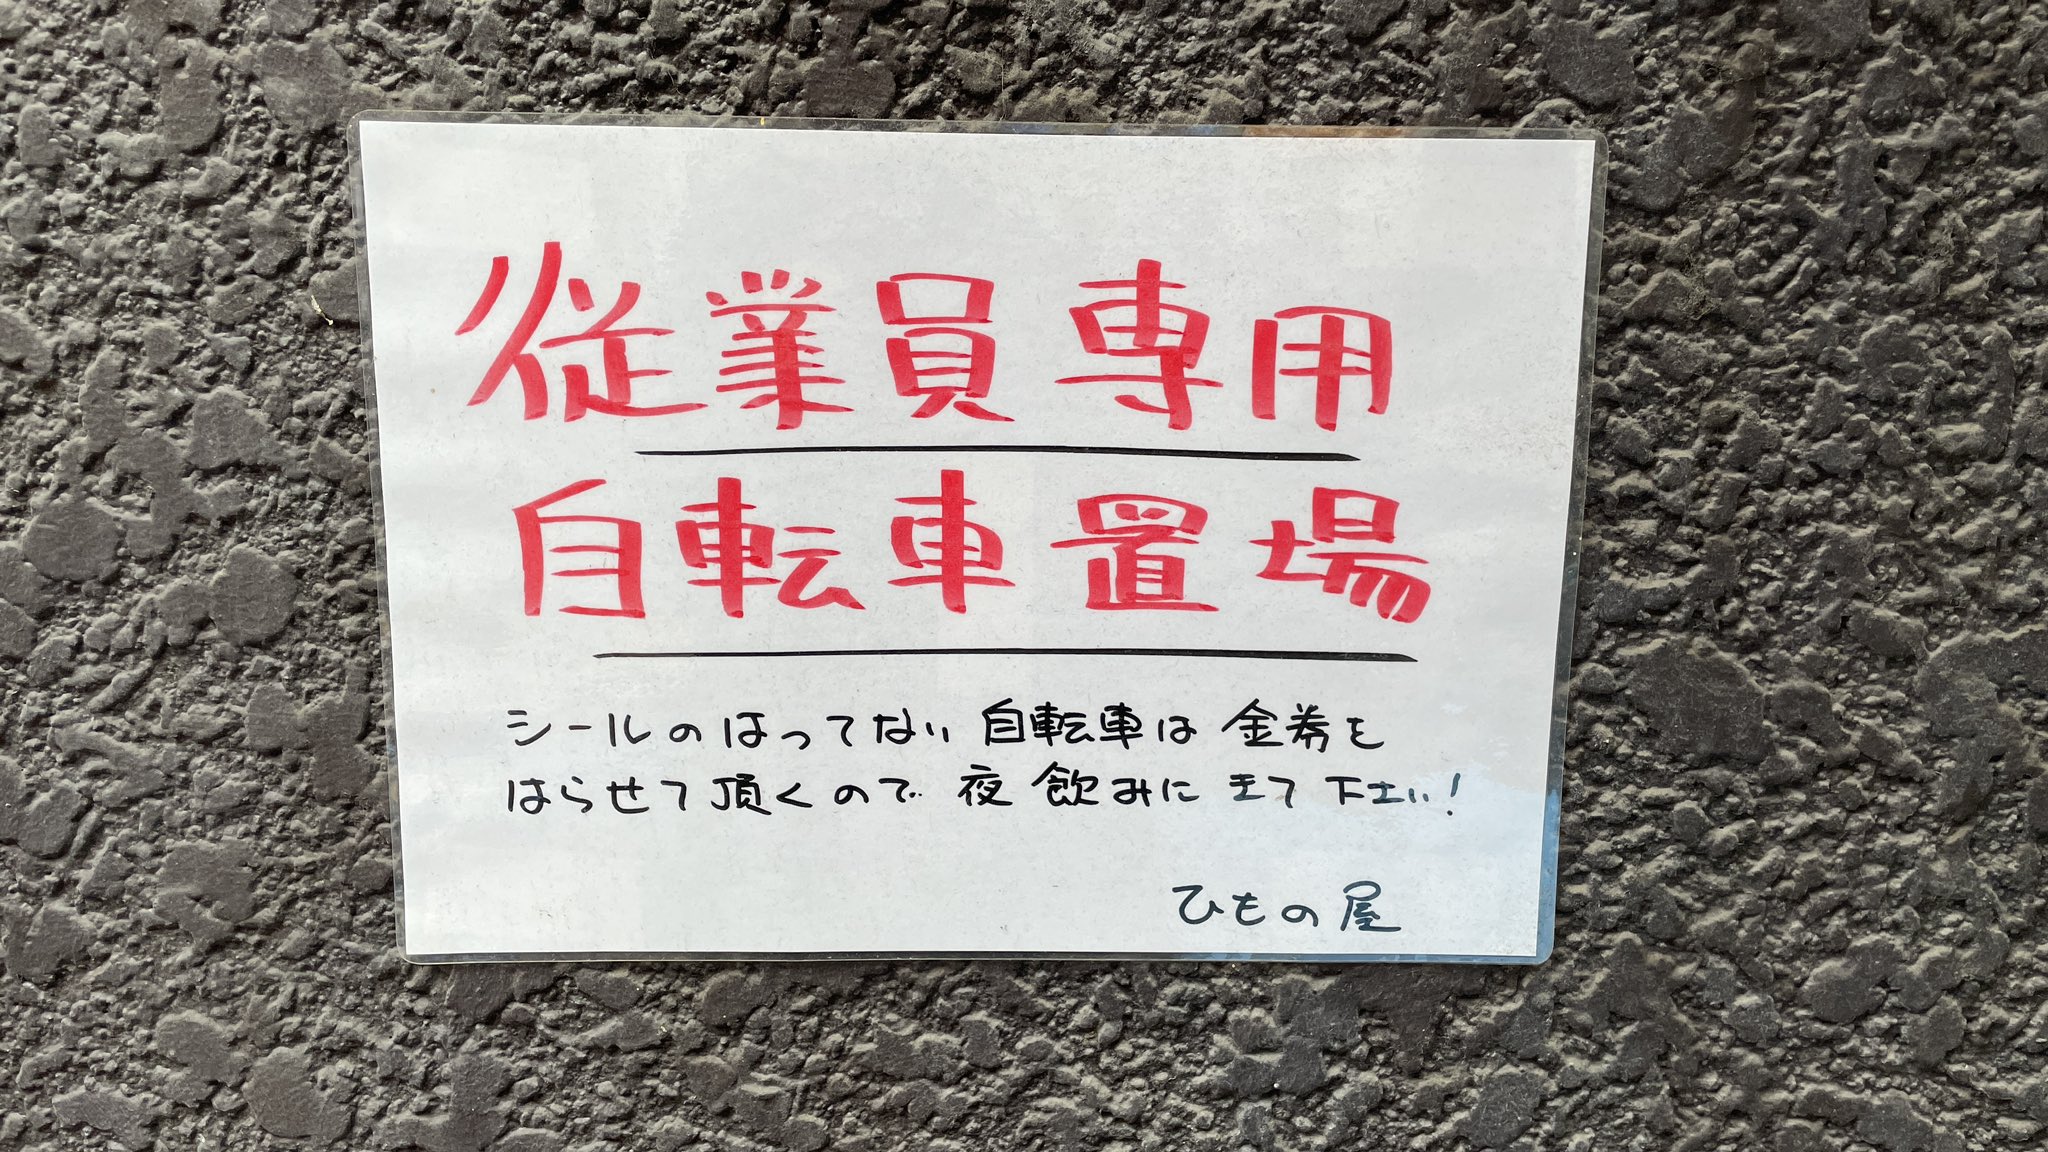 従業員専用
自転車置場
シールのはってない自転車は金券を
はらせて頂くので夜飲みにきて下さい!
ひもの屋